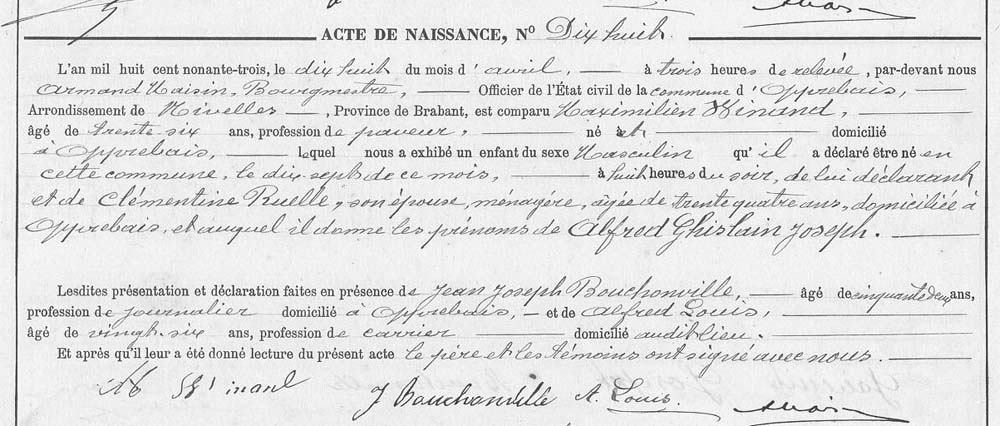 ACTE DE NAISSANCE, N° Dix huit
L'an mil huit cent nonante-trois, le dix huit du mois d'avril, à trois heures de relevée, par-devant nous
Armand Haisin, Bourgmestre, Officier de l'État civil de la commune d'Opprebais,
Arrondissement de Nivelles, Province de Brabant, est comparu Maximilien Winand,
âgé de trente six ans, profession de paveur, né et domicilié
à Opprebais, lequel nous a exhibé un enfant du sexe Masculin qu'il a déclaré être né en
cette commune, le dix sept de ce mois, à huit heures du soir, de lui déclarant
et de Clémentine Ruelle, son épouse, ménagère, âgée de trente quatre ans, domiciliée à
Opprebais, et auquel il donne les prénoms de Alfred Ghislain Joseph.
Lesdites présentation et déclaration faites en présence de Jean Joseph Bouchonville, âgé de cinquante deux ans,
profession de journalier domicilié à Opprebais, et de Alfred Louis,
âgé de vingt six ans, profession de carrier domicilié audit lieu.
Et après qu'il leur a été donné lecture du présent acte le père et les témoins ont signé avec nous.
J Bouchonville A. Louis